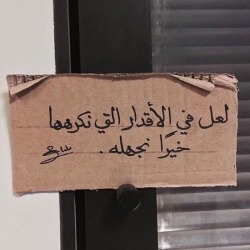 لعل في الأقدار التي نكرهها
خيرًا نجهله.